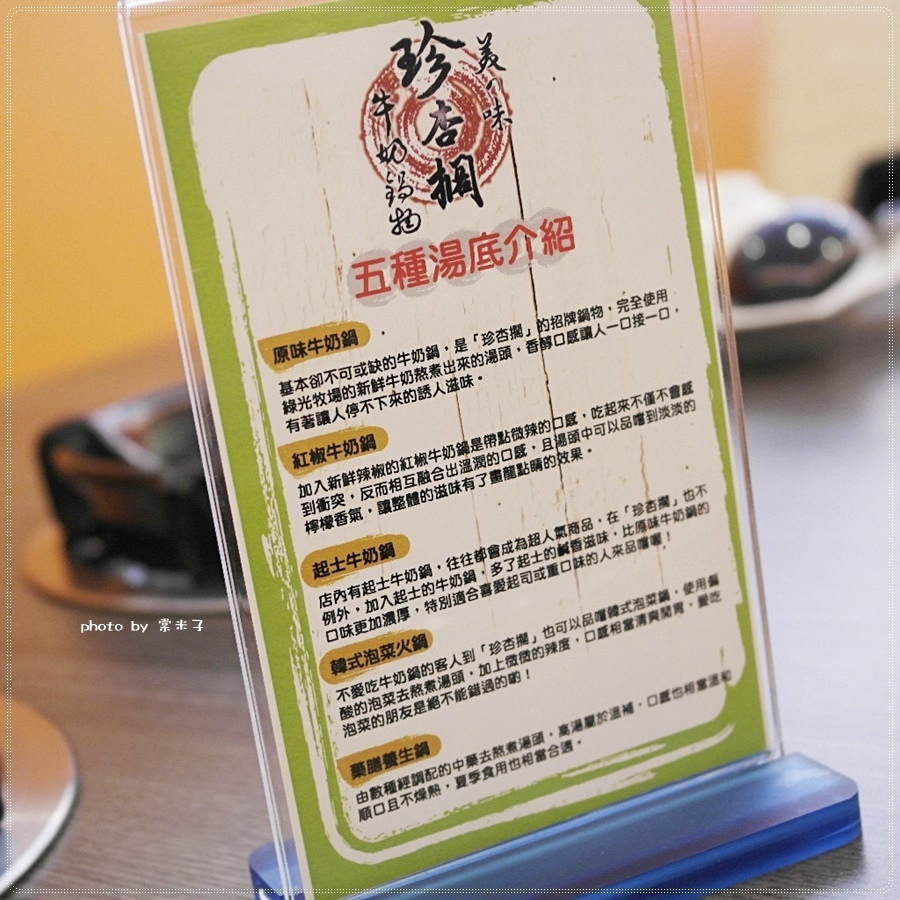 美の味
珍杏擱
牛奶鍋物
五種湯底介紹
原味牛奶鍋
基本卻不可或缺的牛奶鍋，是「珍杏擱」的招牌鍋物，完全使用
綠光牧場的新鮮牛奶熬煮出來的湯頭，香醇口感讓人一口接一口，
有著讓人停不下來的誘人滋味。
紅椒牛奶鍋
加入新鮮辣椒的紅椒牛奶鍋是帶點微辣的口感，吃起來不僅不會感
到衝突，反而相互融合出溫潤的口感，且湯頭中可以品嚐到淡淡的
檸檬香氣，讓整體的滋味有了畫龍點睛的效果。
起士牛奶鍋
店內有起士牛奶鍋，往往都會成為超人氣商品，在「珍杏擱」也不
例外，加入起士的牛奶鍋，多了起士的鹹香滋味，比原味牛奶鍋的
口味更加濃厚，特別適合喜愛起司或重口味的人來品嚐喔！
韓式泡菜火鍋
不愛吃牛奶鍋的客人到「珍杏擱」也可以品嚐韓式泡菜鍋，使用偏
酸的泡菜去熬煮湯頭，加上微微的辣度，口感相當清爽開胃，愛吃
泡菜的朋友是絕不能錯過的喲！
藥膳養生鍋
由數種經調配的中藥去熬煮湯頭，高湯屬於溫補，口感也相當溫和
順口且不燥熱，夏季食用也相當合適。
photo by 棠米子